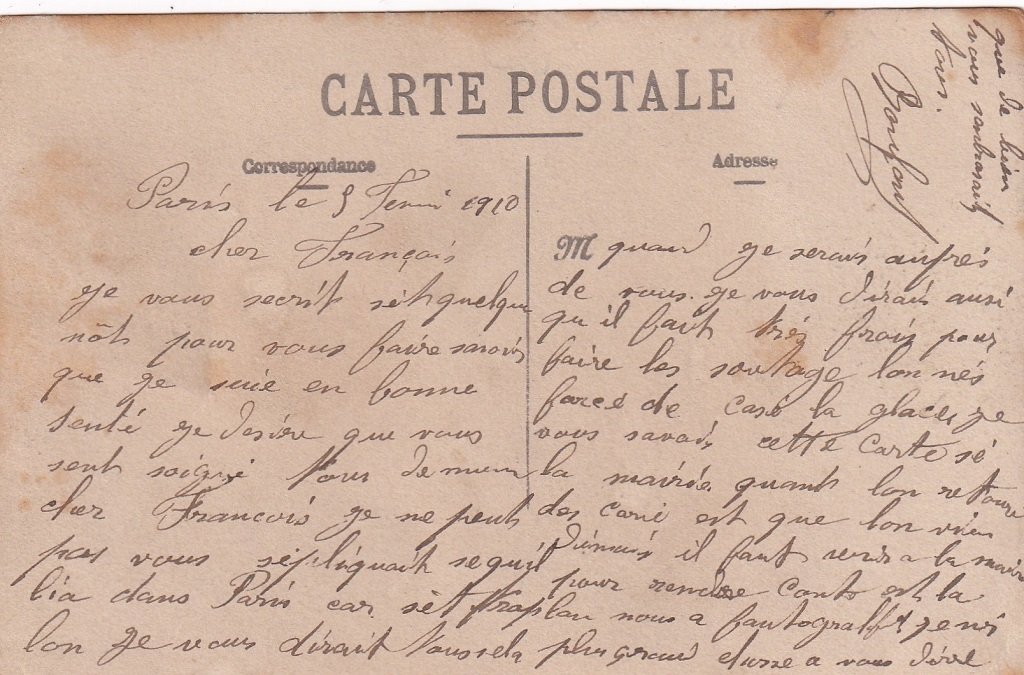 CARTE POSTALE
Correspondance
Paris le 5 Fevrii 1910
cher Français
Je vous secrit sèt quelque
nôts pour vous faire savoir
que je suie en bonne
senté je desire que vous
sent soigné tous de mem
cher Francois je ne peut
pas vous sèpliquait sequil
lia dans Paris car sèt trap
lon Je vous dirait toussela
Adresse
M quand je serais auprès
de vous. je vous dirais ausi
qu il faut très frois pour
faire les soutage lon nés
forcé de casé la glace, je
vous savais cette carte sé
la mairie quant lon retoure
des corvé est que lon vien
il faut venir a la mairi
pour rendre conte est la
lau nous a fautograff je nis
plus grand chose a vous dire
que de bien
vous sembrasait
tous.